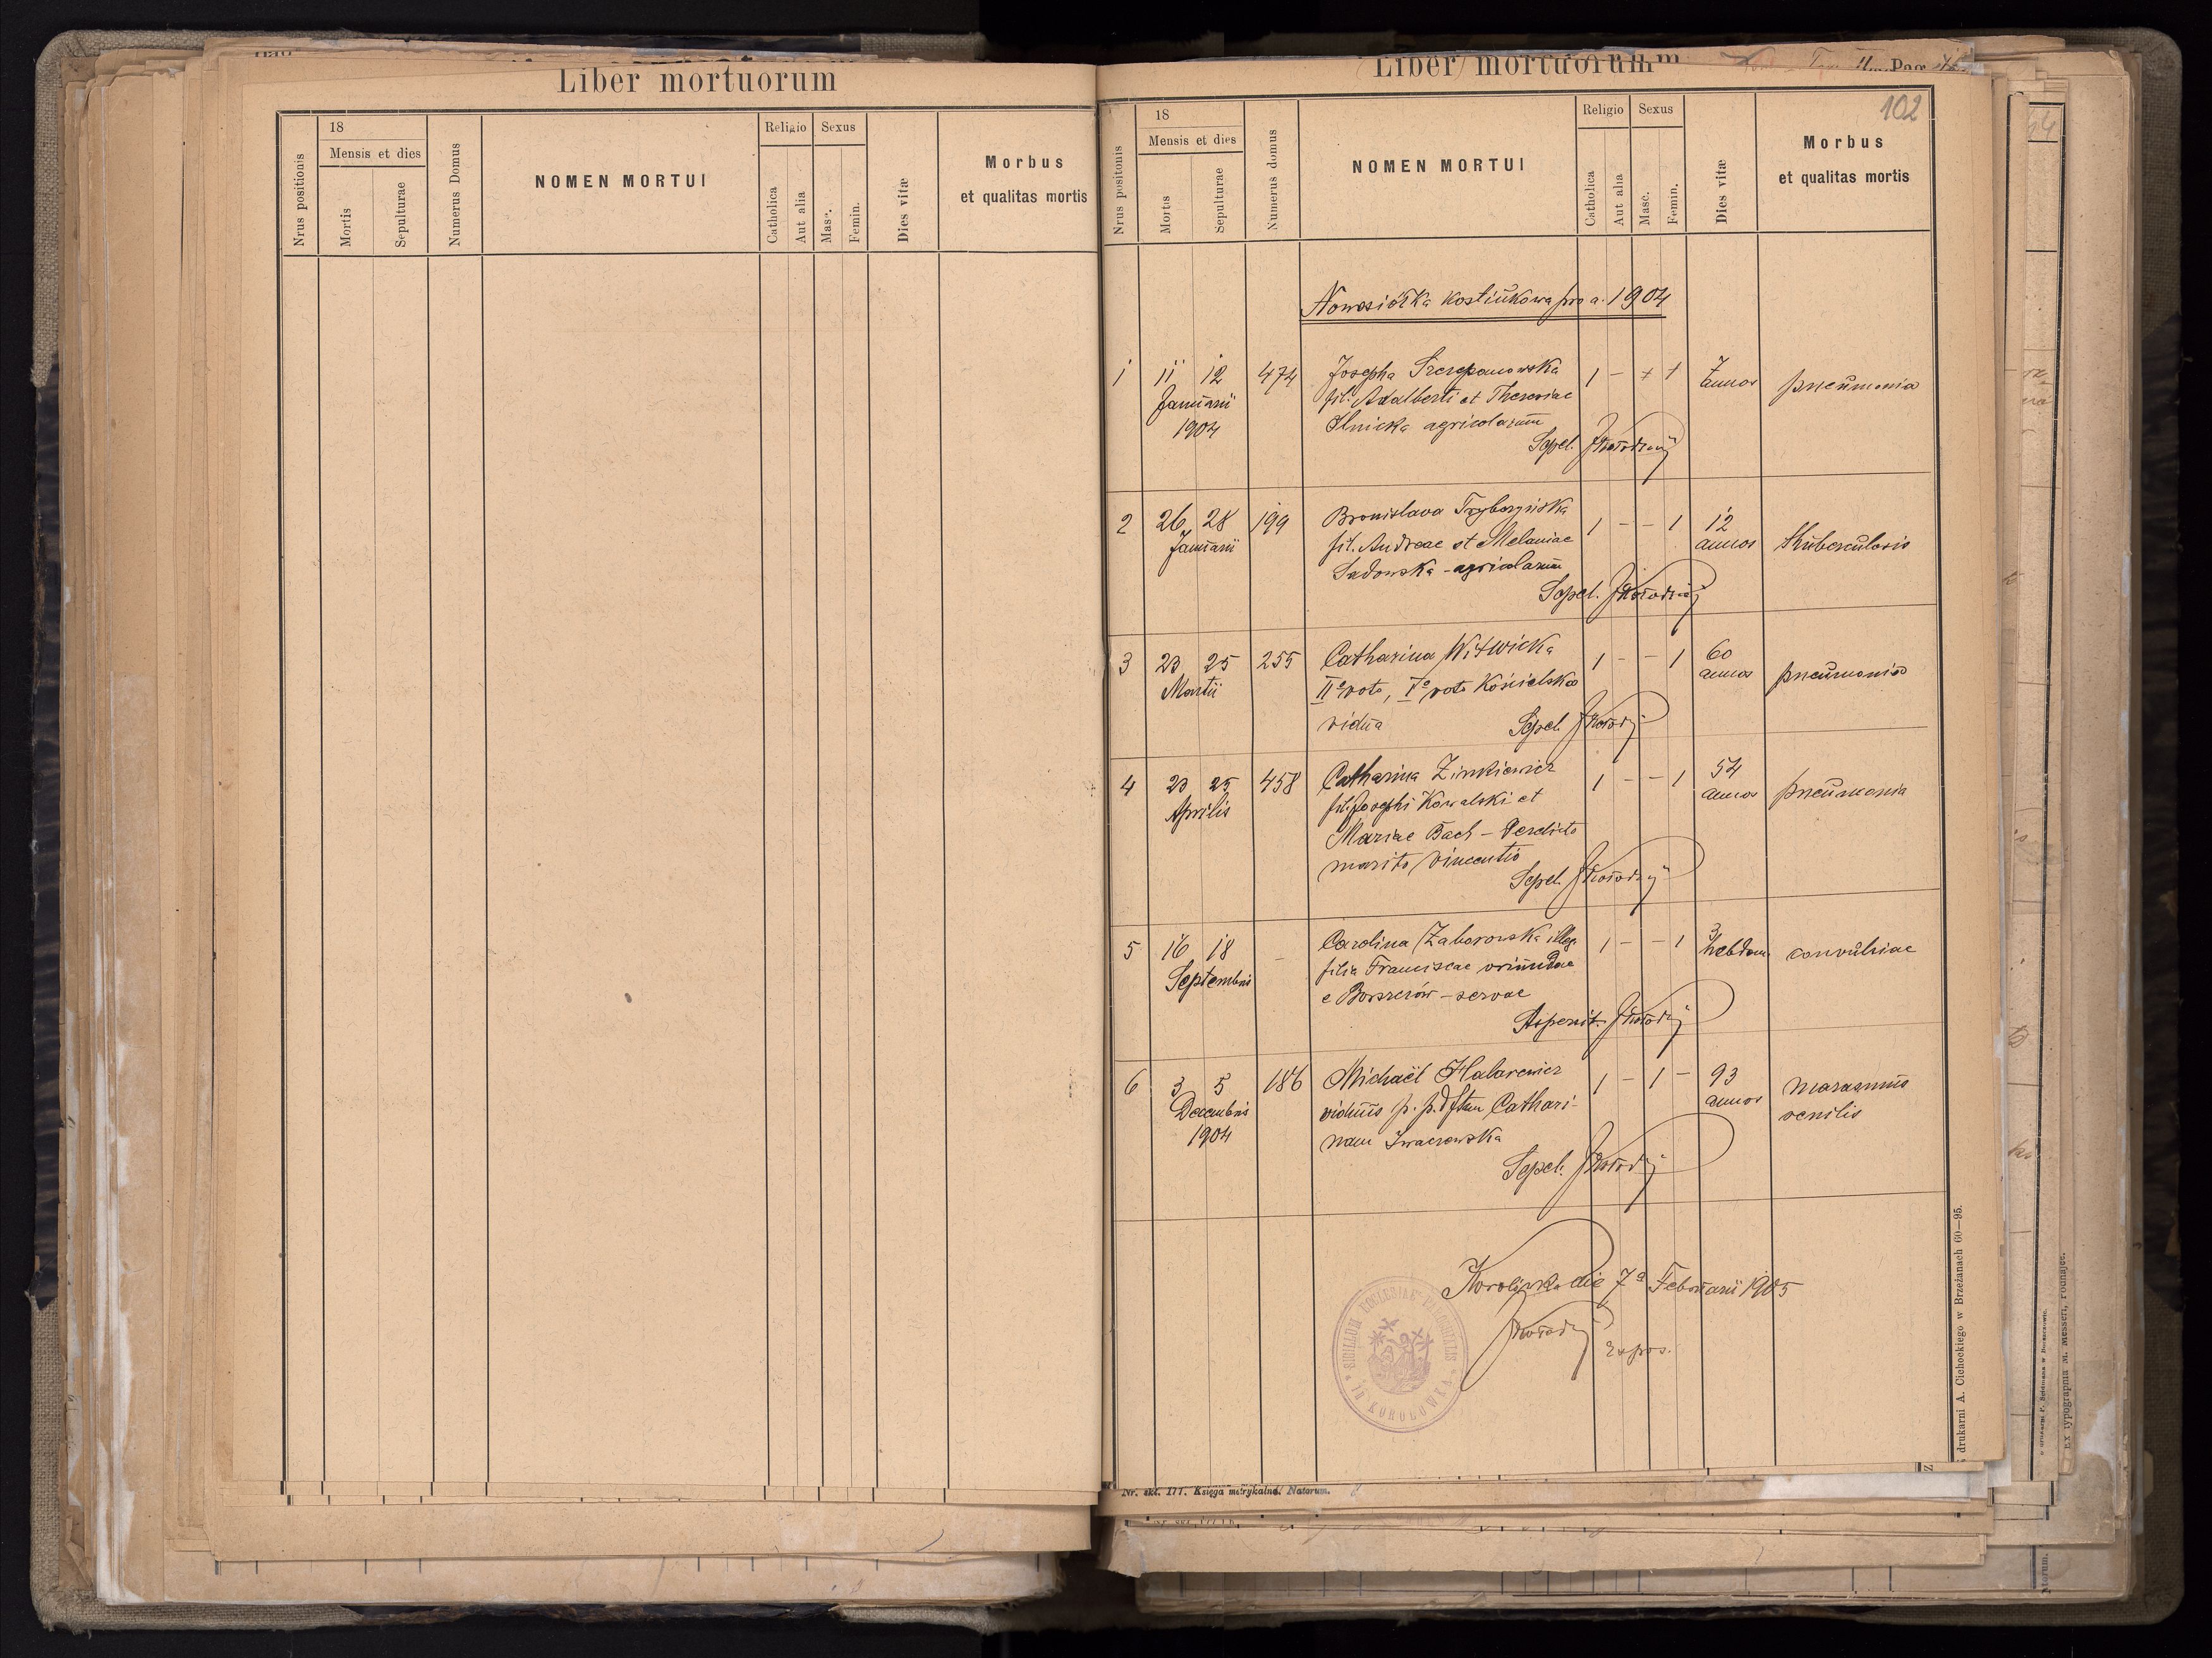 Liber mortuorum
Nrus positionis
18
Mensis et dies
Mortis
Sepulturae
Numerus Domus
NOMEN MORTUI
Religio
Catholica
Aut alia
Sexus
Masc.
Femin.
Dies vitæ
Morbus
et qualitas mortis
Liber mortuorum
Pag
102
Nrus positionis
18
Mensis et dies
Mortis
Sepulturae
Numerus domus
NOMEN MORTUI
Religio
Catholica
Aut alia
Sexus
Masc.
Femin.
Dies vitæ
Morbus
et qualitas mortis
Nowosiółka Kostiukowa pro a. 1904
1 11 12 474 Josepha Szczepanowska 1 - + + 7
Januarii fil. Adalberti et Theresiae annos pneumonia
1904 Ilnicka agricolarum
Sepel.
2 26 28 199 Bronislava 1 - - 1 12
Januarii fil. Andreae et Melaniae annos thuberculosis
Sadowska - agricolarum
Sepel.
3 23 25 255 Catharina Witwicka 1 - - 1 60
Martii II° voto, I° voto Kościelska annos pneumonia
vidua Sepel.
4 23 25 458 Catharina Zinkiewicz 1 - - 1 54
Aprilis fil. Josephi Kowalski et annos pneumonia
Mariae Bach - derelicto
marito Vincentio
Sepel.
5 16 18 - Carolina Zaborowska illeg. 1 - - 1 3
Septembris filia Franciscae oriundae hebdom. convulsiae
e Borszczów - servae
Aspersit.
6 3 5 186 Michaël Halarewicz 1 - 1 - 93
Decembris viduus p. p. dftam Cathari- annos marasmus
1904 nam Iwaczewska senilis
Sepel.
Korolówka die 7a Februarii 1905
Expos.
SIGILLUM ECCLESIAE PAROCHIALIS
IN KOROLOWKA
Z drukarni A. Cichockiego w Brzeżanach 60—95.
Nr. skł. 177. Księga metrykalna. Natorum.